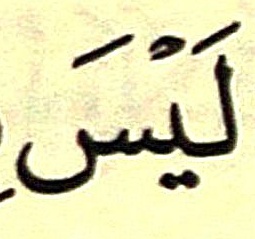 لَيْسَ